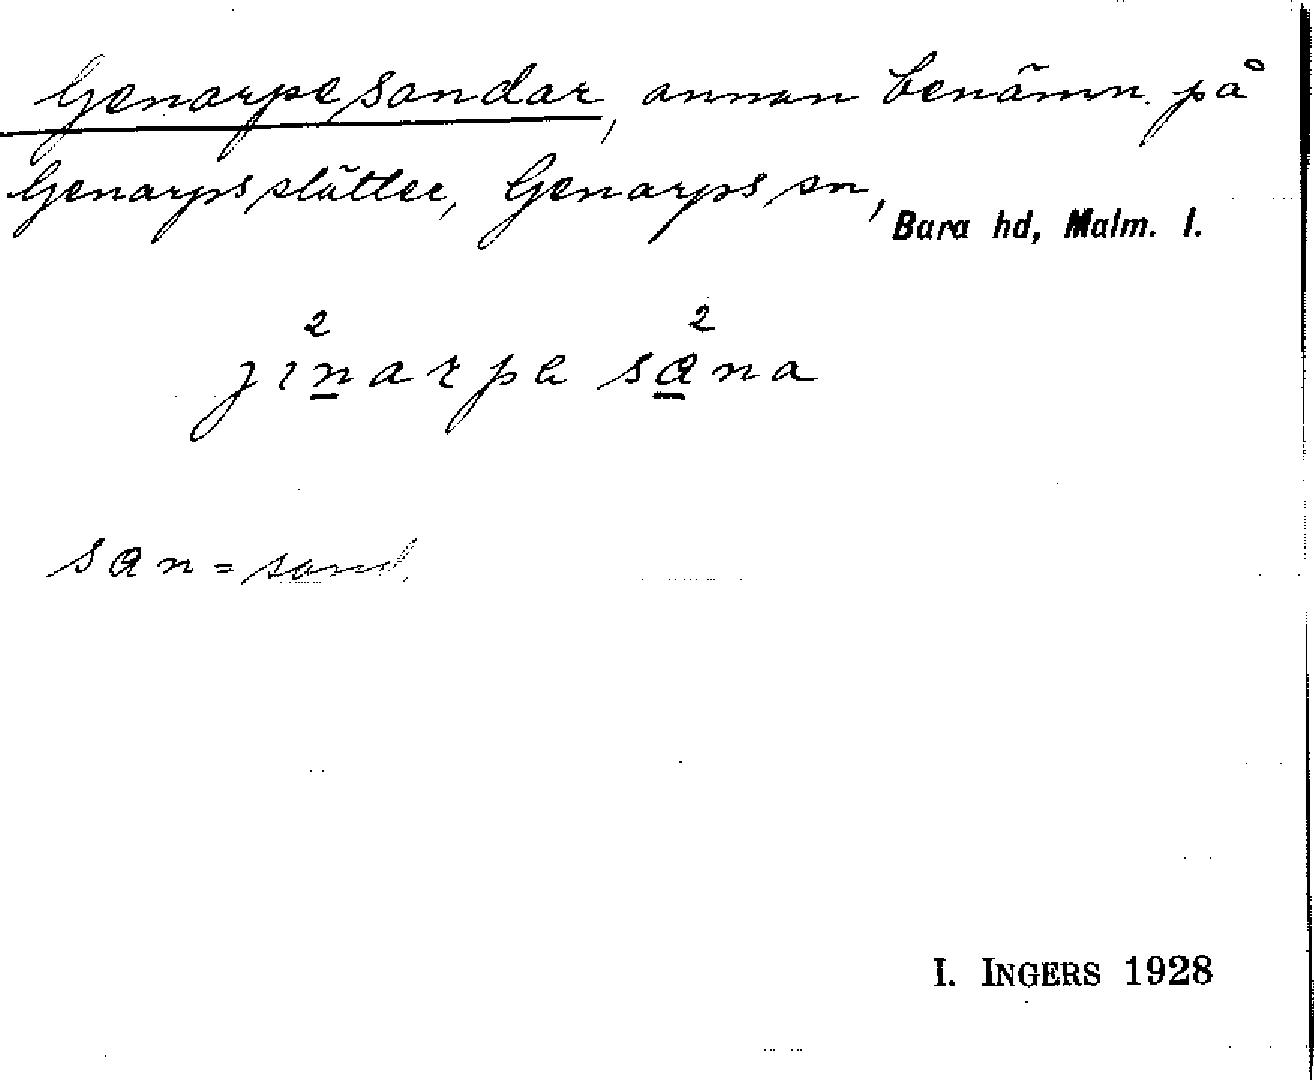 Genarpesandar, annan benämn. på
Genarps slätter, Genarps sn, Bara hd, Malm. l.
2 2
jinarpa sana
san = sand.
I. INGERS 1928